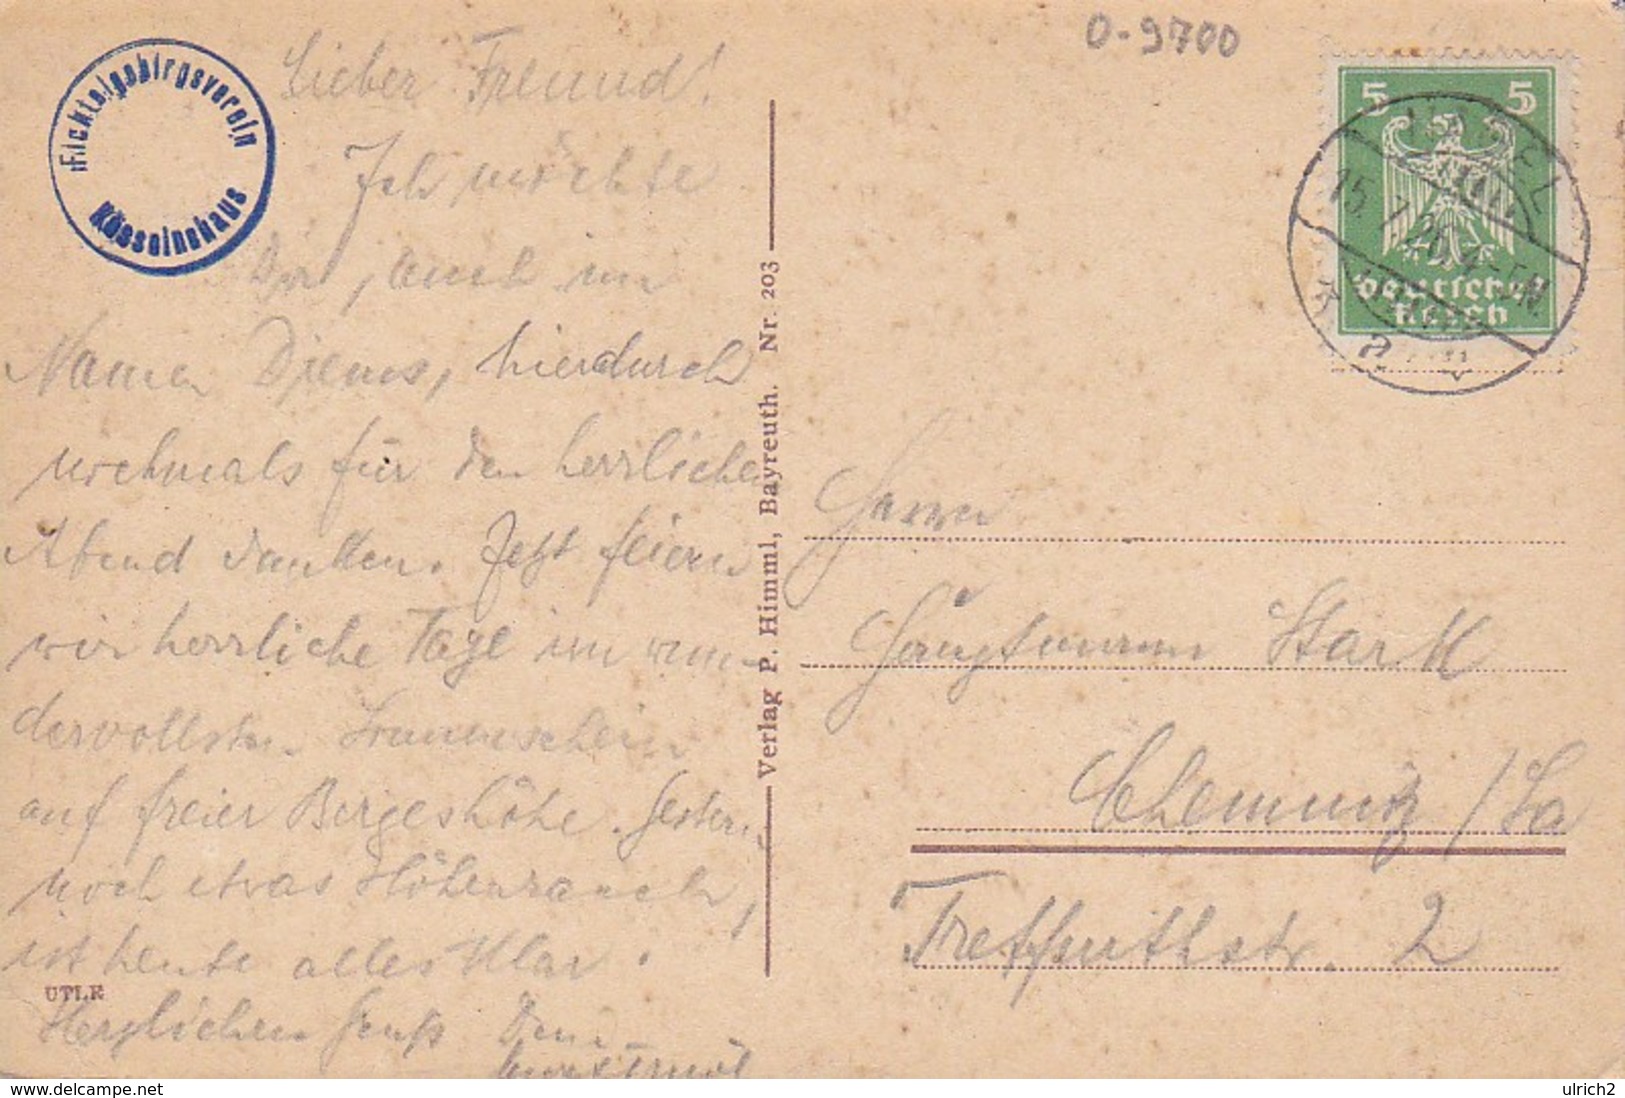 O-9700
Fichtelgebirgsverein
Kösseinehaus
Lieber Freund!
Ich möchte
Dir, auch im
Namen Djems, hierdurch
nochmals für den herrlichen
Abend danken. Jetzt feiern
wir herrliche Tage im wun-
dervollsten Sonnenschein
auf freier Bergeshöhe. Gestern
noch etwas Höhenrauch,
ist heute alles klar.
Herzlichen Gruß Dein
UTLE
Verlag P. Himml, Bayreuth. Nr. 203
5 5
Deutsches
Reich
15.7.26. 4-5N
Herrn
Hauptmann Stark
Chemnitz / Sa
2
delcampe.net
ulrich2